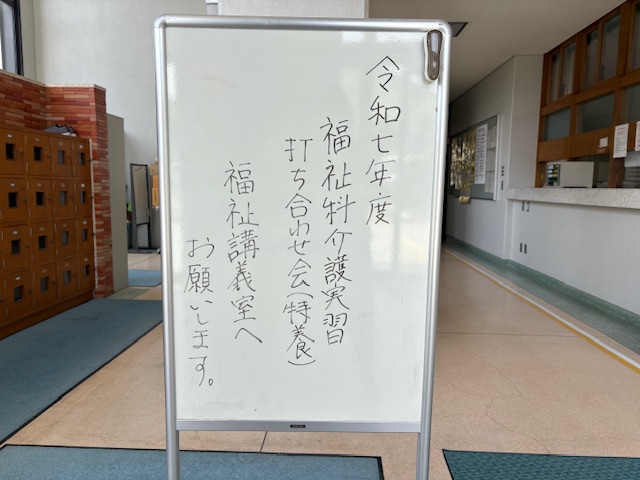 令和七年度
福祉科介護実習
打ち合わせ会(特養)
福祉講義室へ
お願いします。